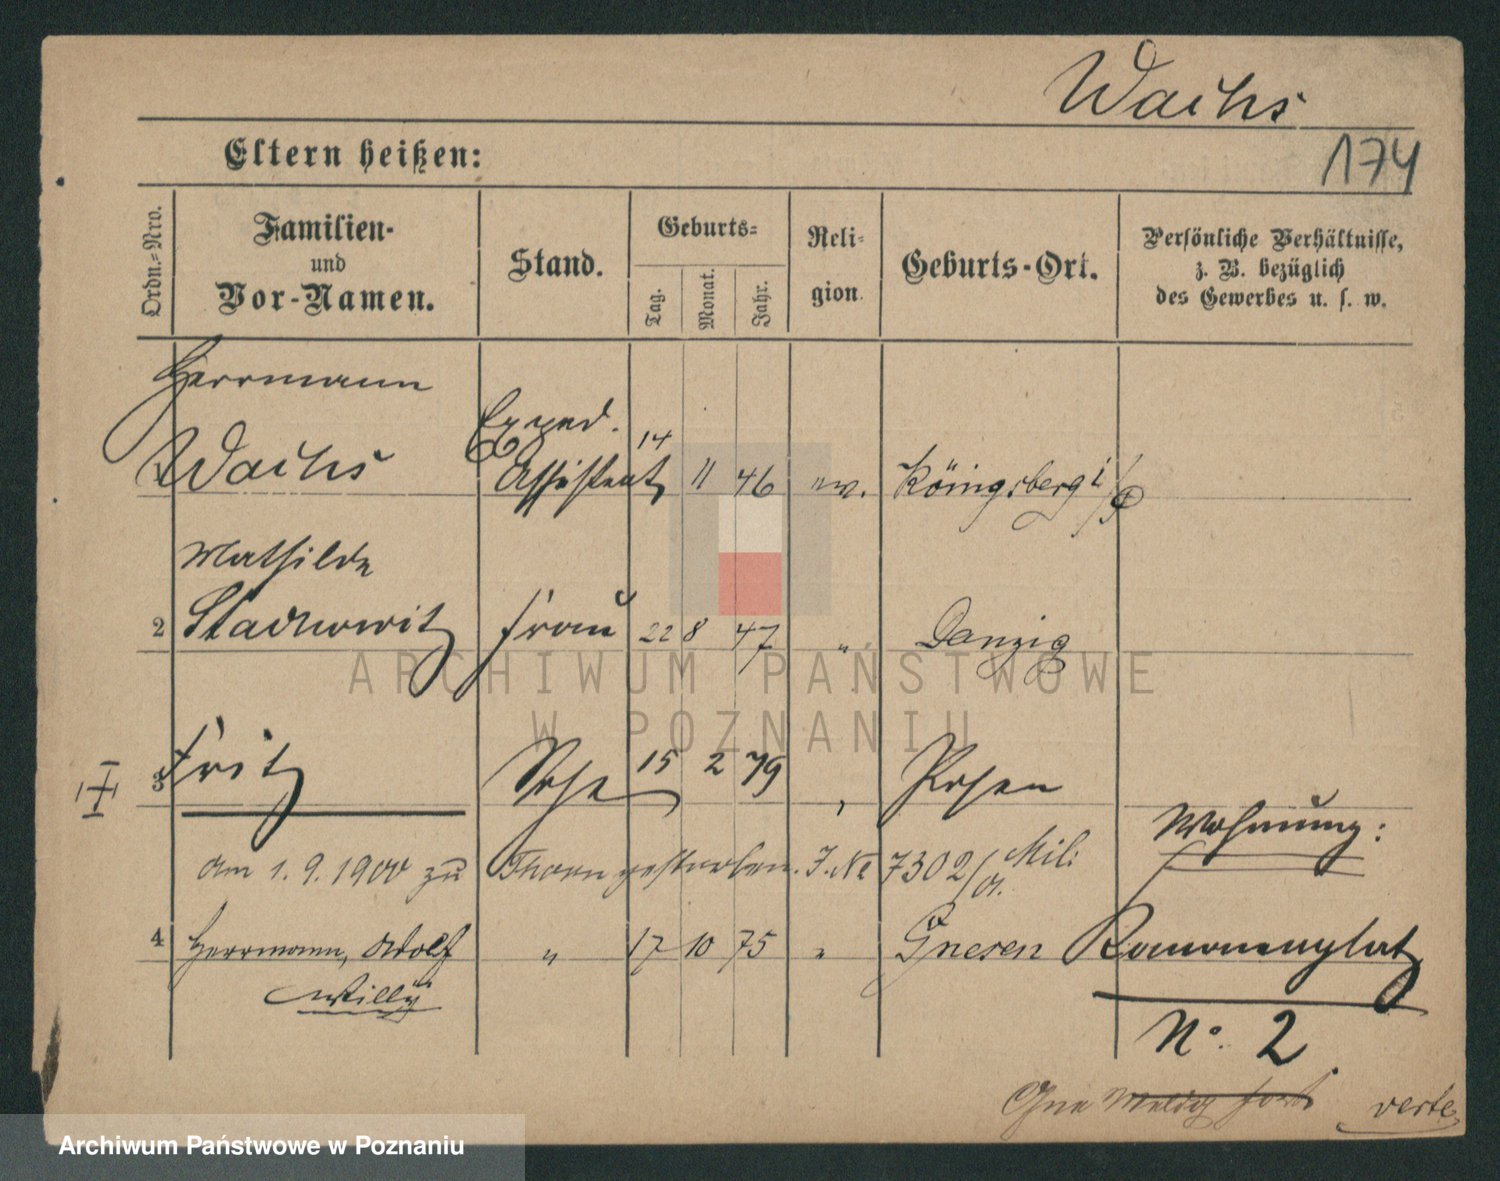 Wachs
174
Eltern heißen:
Ordn.=Nro.
Familien-
und
Vor-Namen.
Stand.
Geburts=
Tag.
Monat.
Jahr.
Reli=
gion.
Geburts-Ort.
Persönliche Verhältnisse,
z. B. bezüglich
des Gewerbes u. s. w.
Herrmann
1 Wachs
Exped.
Assistent
14 11 46 ev. Königsberg i/P
Mathilde
2 Frau 22 8 47 " Danzig
3 Fritz Sohn 15 2 79 " Posen
Wohnung:
am 1. 9. 1900 zu Thorn gestorben. J. No 7302/a. Mil:
4 Herrmann, Adolf " 17 10 75 " Gnesen
Willy
Kanonenplatz
No. 2
Ohne Meldg fort
verte
ARCHIWUM PAŃSTWOWE
W POZNANIU
Archiwum Państwowe w Poznaniu